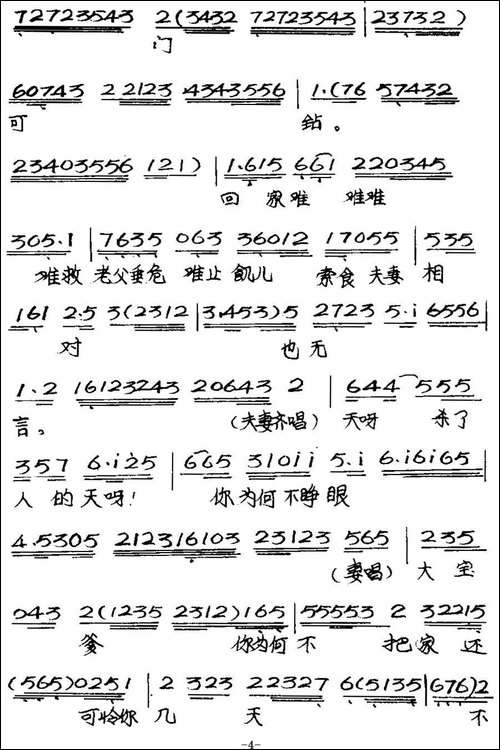 72723543 2(3432 72723543|23732)
门
60743 2 2123 4343556|1.(76 57432
可 钻。
23403556 121)|1.615 661 220345
回 家难 难难
305.1|7635 063 36012 17055|535
难救 老父垂危 难止 飢儿 索食 夫妻 相
161 2.5 3(2312|3.453)5 2723 5.i 6556|
对 也 无
1.2 16123243 20643 2|644 555
言。 (夫妻齐唱) 天呀 杀了
357 6.i25|665 310ii 5.i 6.i6i65|
人 的 天呀! 你为何 不睁眼
4.5305 212316103 23123 565|235
(妻唱) 大 宝
043 2(1235 2312)165|55553 2 32215
爹 你为何 不 把 家 还
(565)0251|2 323 22327 6(5135|676)2
可怜你 几 天 不
-4-